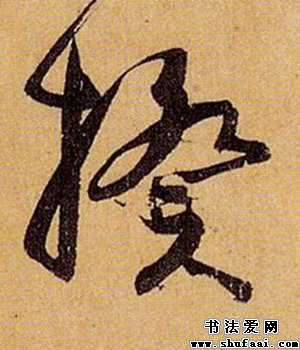 揆
书法爱网
www.shufaai.com